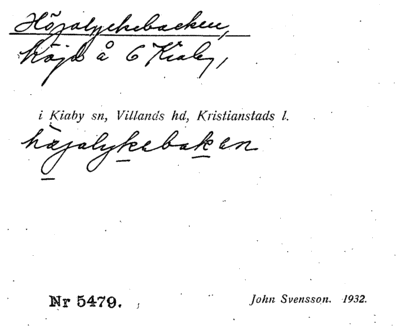 Höjalyckebacken,
höjd å 6 Kiaby,
i Kiaby sn, Villands hd, Kristianstads l.
hæjalykebaken
Nr 5479.
John Svensson. 1932.